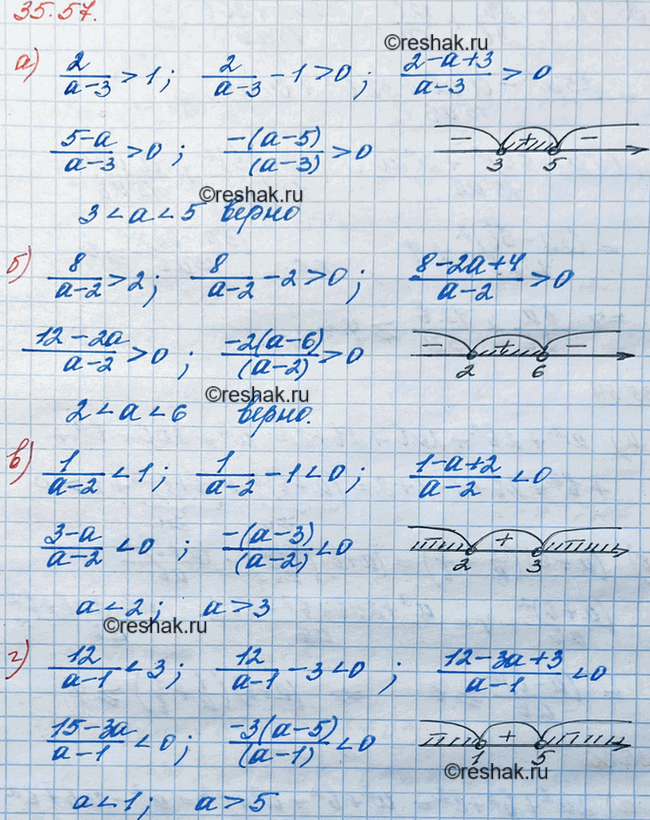 35.57.
©reshak.ru
а) 2/(a-3) > 1; 2/(a-3) - 1 > 0; (2-a+3)/(a-3) > 0
(5-a)/(a-3) > 0; -(a-5)/(a-3) > 0 - + - 3 5
©reshak.ru
3 < a < 5 верно
б) 8/(a-2) > 2; 8/(a-2) - 2 > 0; (8-2a+4)/(a-2) > 0
(12-2a)/(a-2) > 0; -2(a-6)/(a-2) > 0 - + - 2 6
©reshak.ru
2 < a < 6 верно.
в) 1/(a-2) < 1; 1/(a-2) - 1 < 0; (1-a+2)/(a-2) < 0
(3-a)/(a-2) < 0; -(a-3)/(a-2) < 0 + 2 3
a < 2; a > 3
©reshak.ru
г) 12/(a-1) < 3; 12/(a-1) - 3 < 0; (12-3a+3)/(a-1) < 0
(15-3a)/(a-1) < 0; -3(a-5)/(a-1) < 0 + 1 5
©reshak.ru
a < 1; a > 5